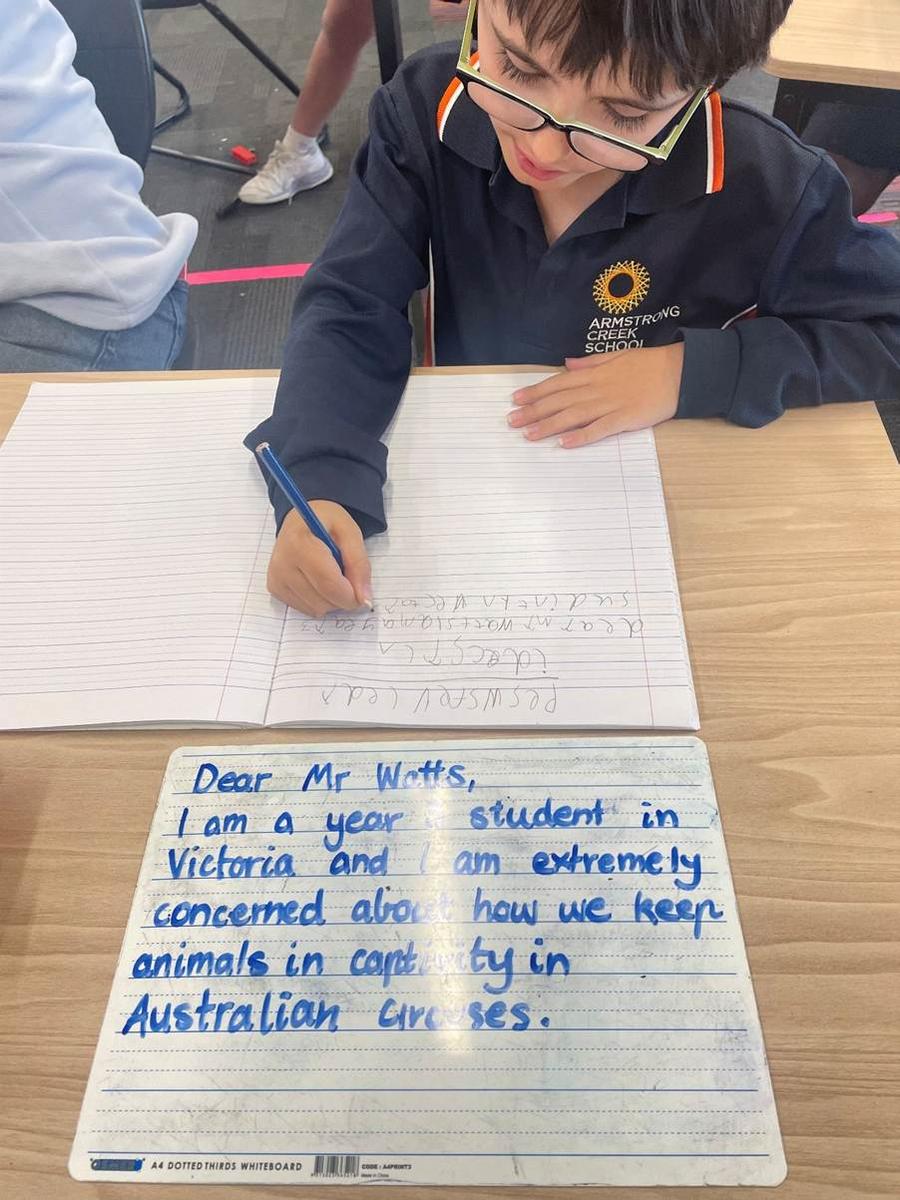 ARMSTRONG
CREEK
SCHOOL
PeSWSteV leda
idecStLn
dear mr wattsiamayear3
sudintkn Vectoa
Dear Mr Watts,
I am a year student in
Victoria and I am extremely
concerned about how we keep
animals in captivity in
Australian circuses.
A4 DOTTED THIRDS WHITEBOARD
CODE : A4PRINT3
Made in China